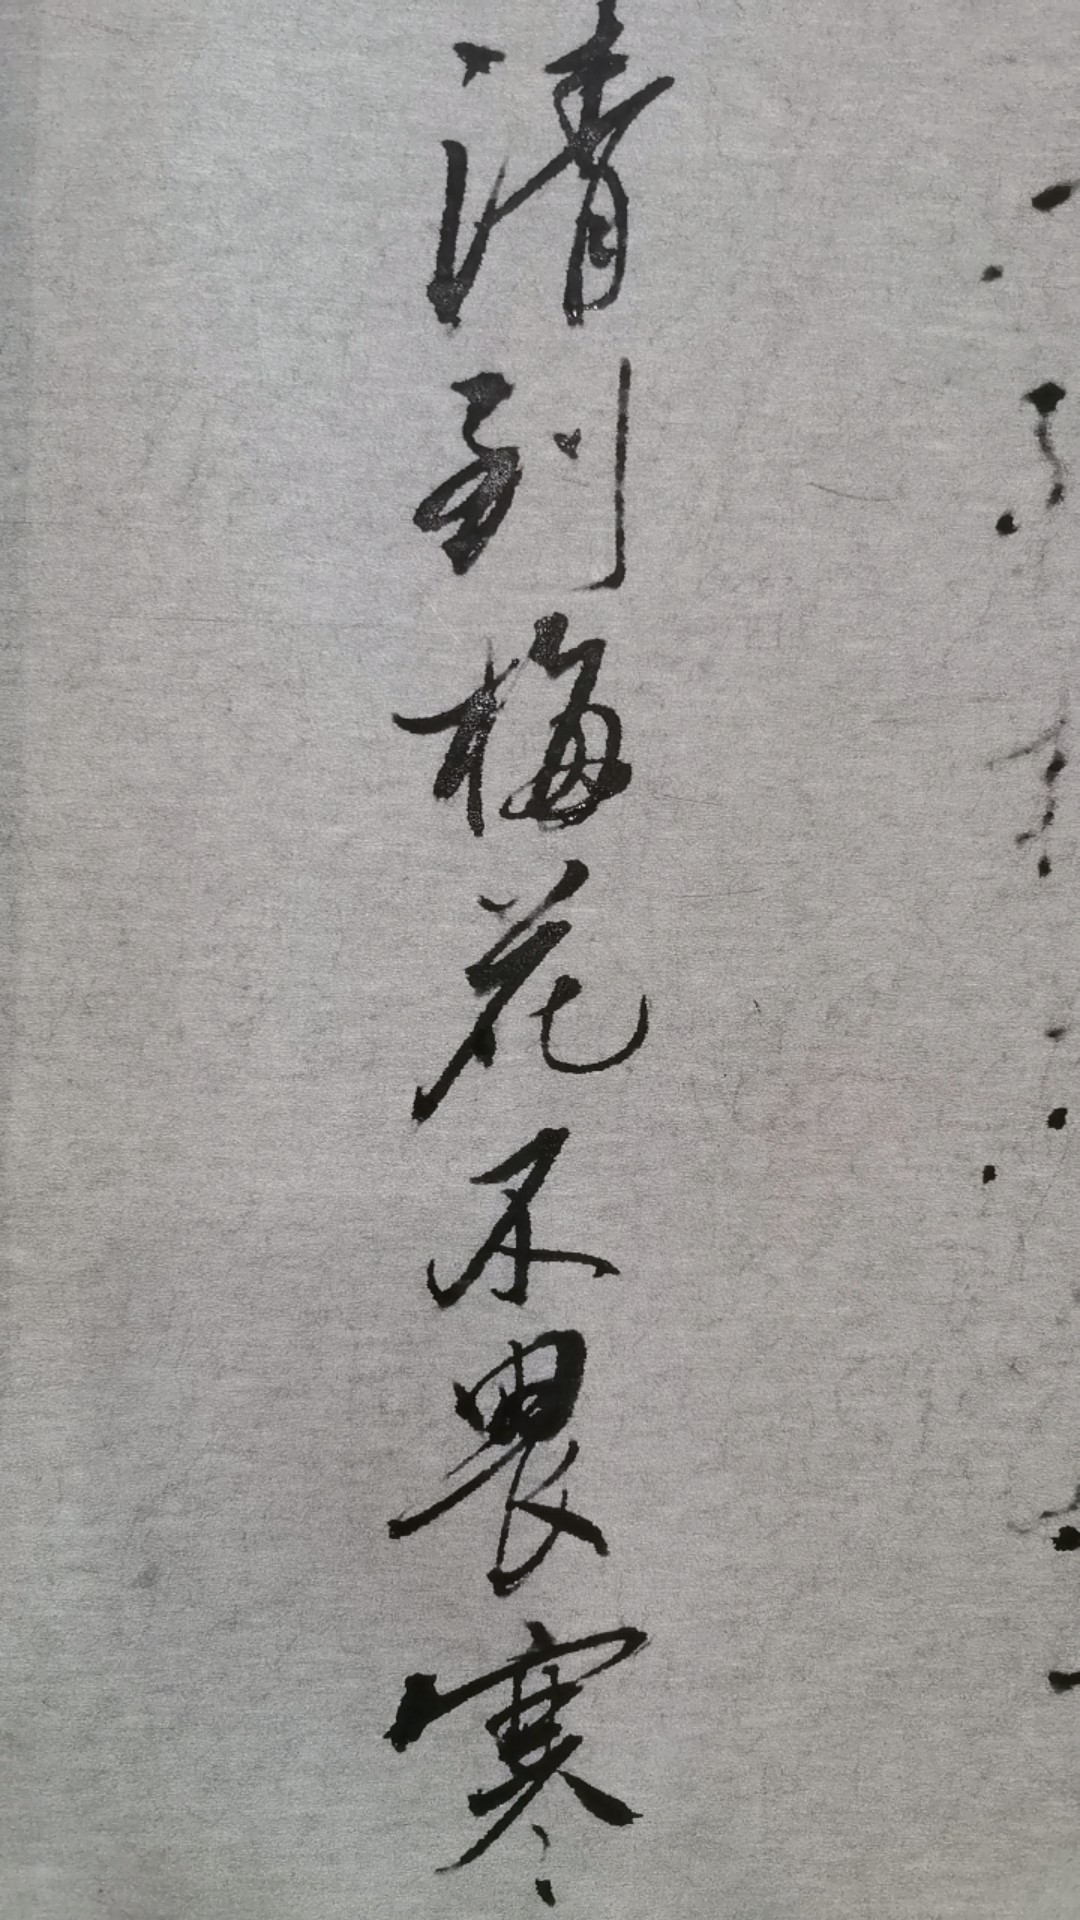 清到梅花不畏寒